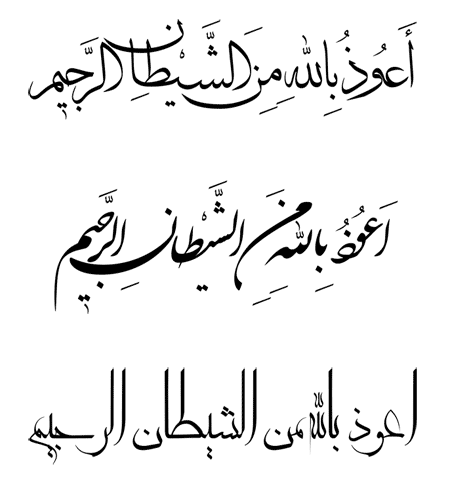 أَعُوذُ بِاللهِ مِنَ الشَّيْطَانِ الرَّجِيمِ
اَعُوْذُ بِاللهِ مِنَ الشَّيْطَانِ الرَّجِيمِ
اعوذ باللّه من الشيطان الرجيم